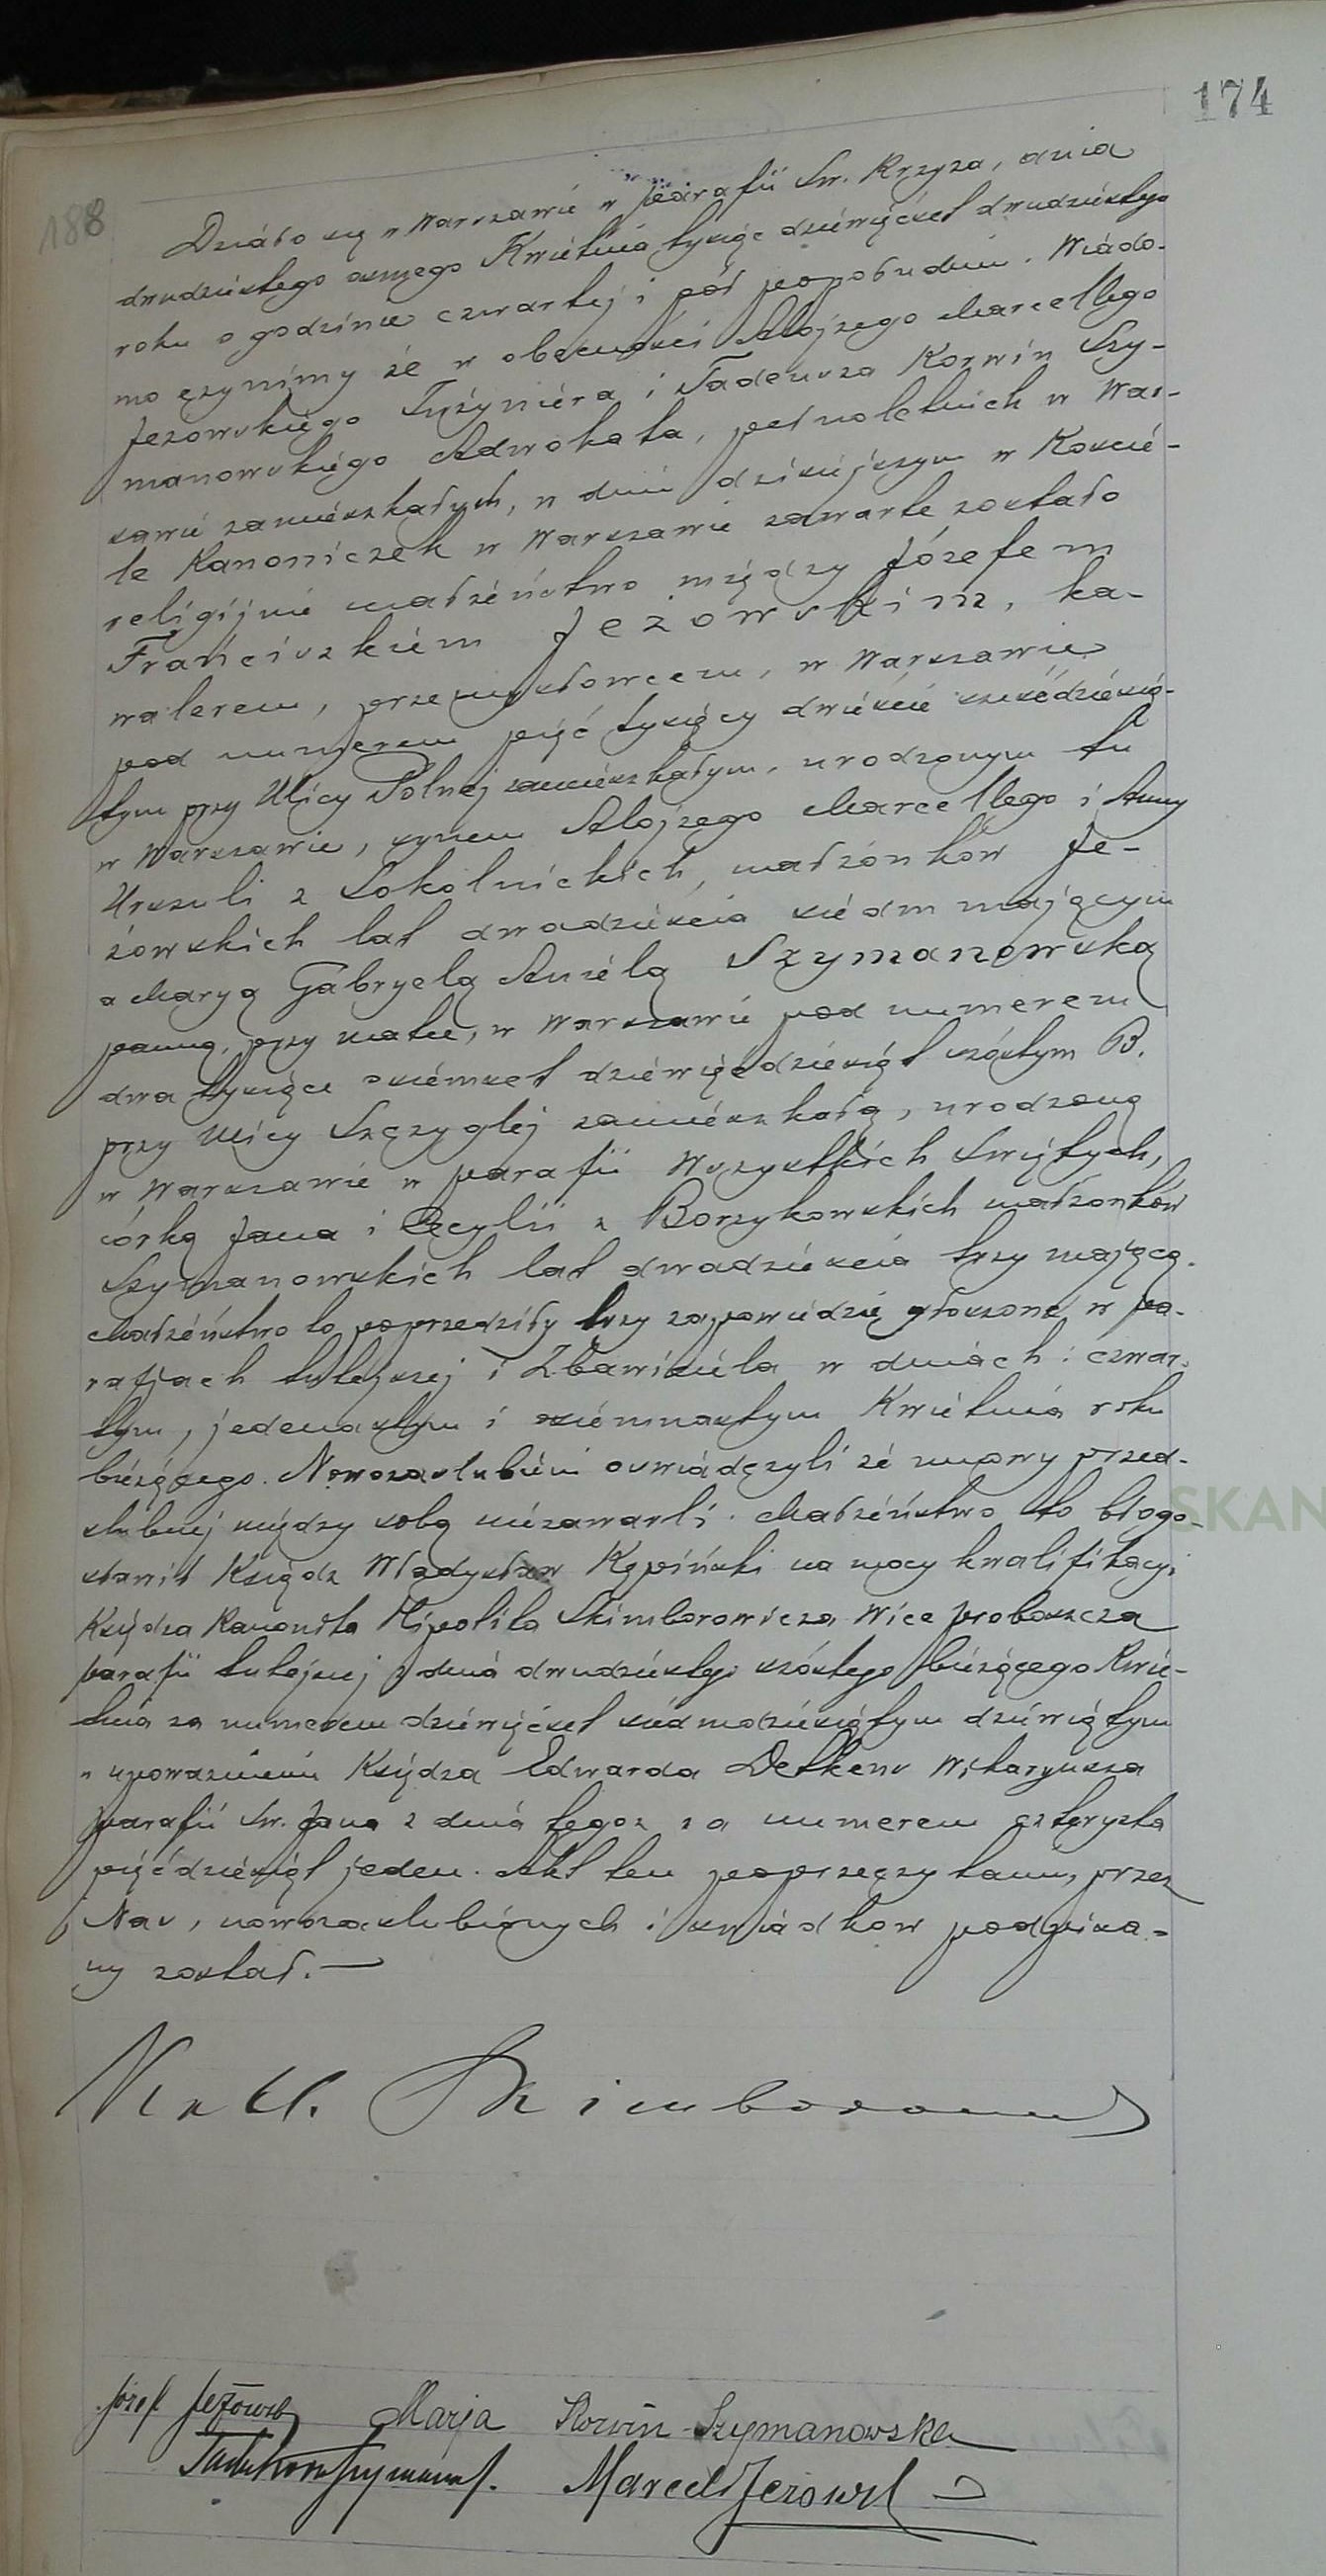 174
188
Działo się w Warszawie w parafii Św. Krzyża, dnia
dwudziestego osmego Kwietnia tysiąc dziewięćset dwudziestego
roku o godzinie czwartej i pół popołudniu. Wiado-
mo czynimy że w obecności Alojzego Marcellego
Jeżowskiego Inżyniera i Tadeusza Korwin Szy-
manowskiego Adwokata, pełnoletnich w War-
szawie zamieszkałych, w dniu dzisiejszym w Koście-
le Kanoniczek w Warszawie zawarte zostało
religijnie małżeństwo między Józefem
Franciszkiem Jeżowskim, ka-
walerem, przemysłowcem, w Warszawie
pod numerem pięć tysięcy dwieście sześćdziesią-
tym przy Ulicy Polnej zamieszkałym, urodzonym tu
w Warszawie, synem Alojzego Marcellego i Anny
Urszuli z Sokolnickich, małżonków Je-
żowskich lat dwadzieścia siedm mającym
a Maryą Gabryelą Anielą Szymanowską
panną, przy matce, w Warszawie pod numerem
dwa tysiące osiemset dziewięćdziesiąt szóstym B.
przy Ulicy Szczyglej zamieszkałą, urodzoną
w Warszawie w parafii Wszystkich Świętych,
córką Jana i Cecylii z Borzykowskich małżonków
Szymanowskich lat dwadzieścia trzy mającą.
Małżeństwo to poprzedziły trzy zapowiedzie głoszone w pa-
rafjach tutejszej i Zbawiciela w dniach: czwar-
tym, jedenastym i osiemnastym Kwietnia roku
bieżącego. Nowozaślubieni oświadczyli że umowy przed-
ślubnej między sobą niezawarli. Małżeństwo to błogo-
sławił Ksiądz Władysław Kępiński na mocy kwalifikacyi
Księdza Kanonika Hipolita Skimborowicza Wice proboszcza
parafii tutejszej z dnia dwudziestego szóstego bieżącego Kwie-
tnia za numerem dziewięćset siedmdziesiątym dziewiątym
i upoważnieniu Księdza Edwarda Detkens Wikaryusza
parafii Św. Jana z dnia tegoż za numerem czterysta
pięćdziesiąt jeden. Akt ten poprzeczytaniu, przez
Nas, nowozaślubionych i świadków podpisa-
ny został. —
Skimborowicz
Józef Jeżowski Marja Korwin-Szymanowska
Marceli Jeżowski
SKAN